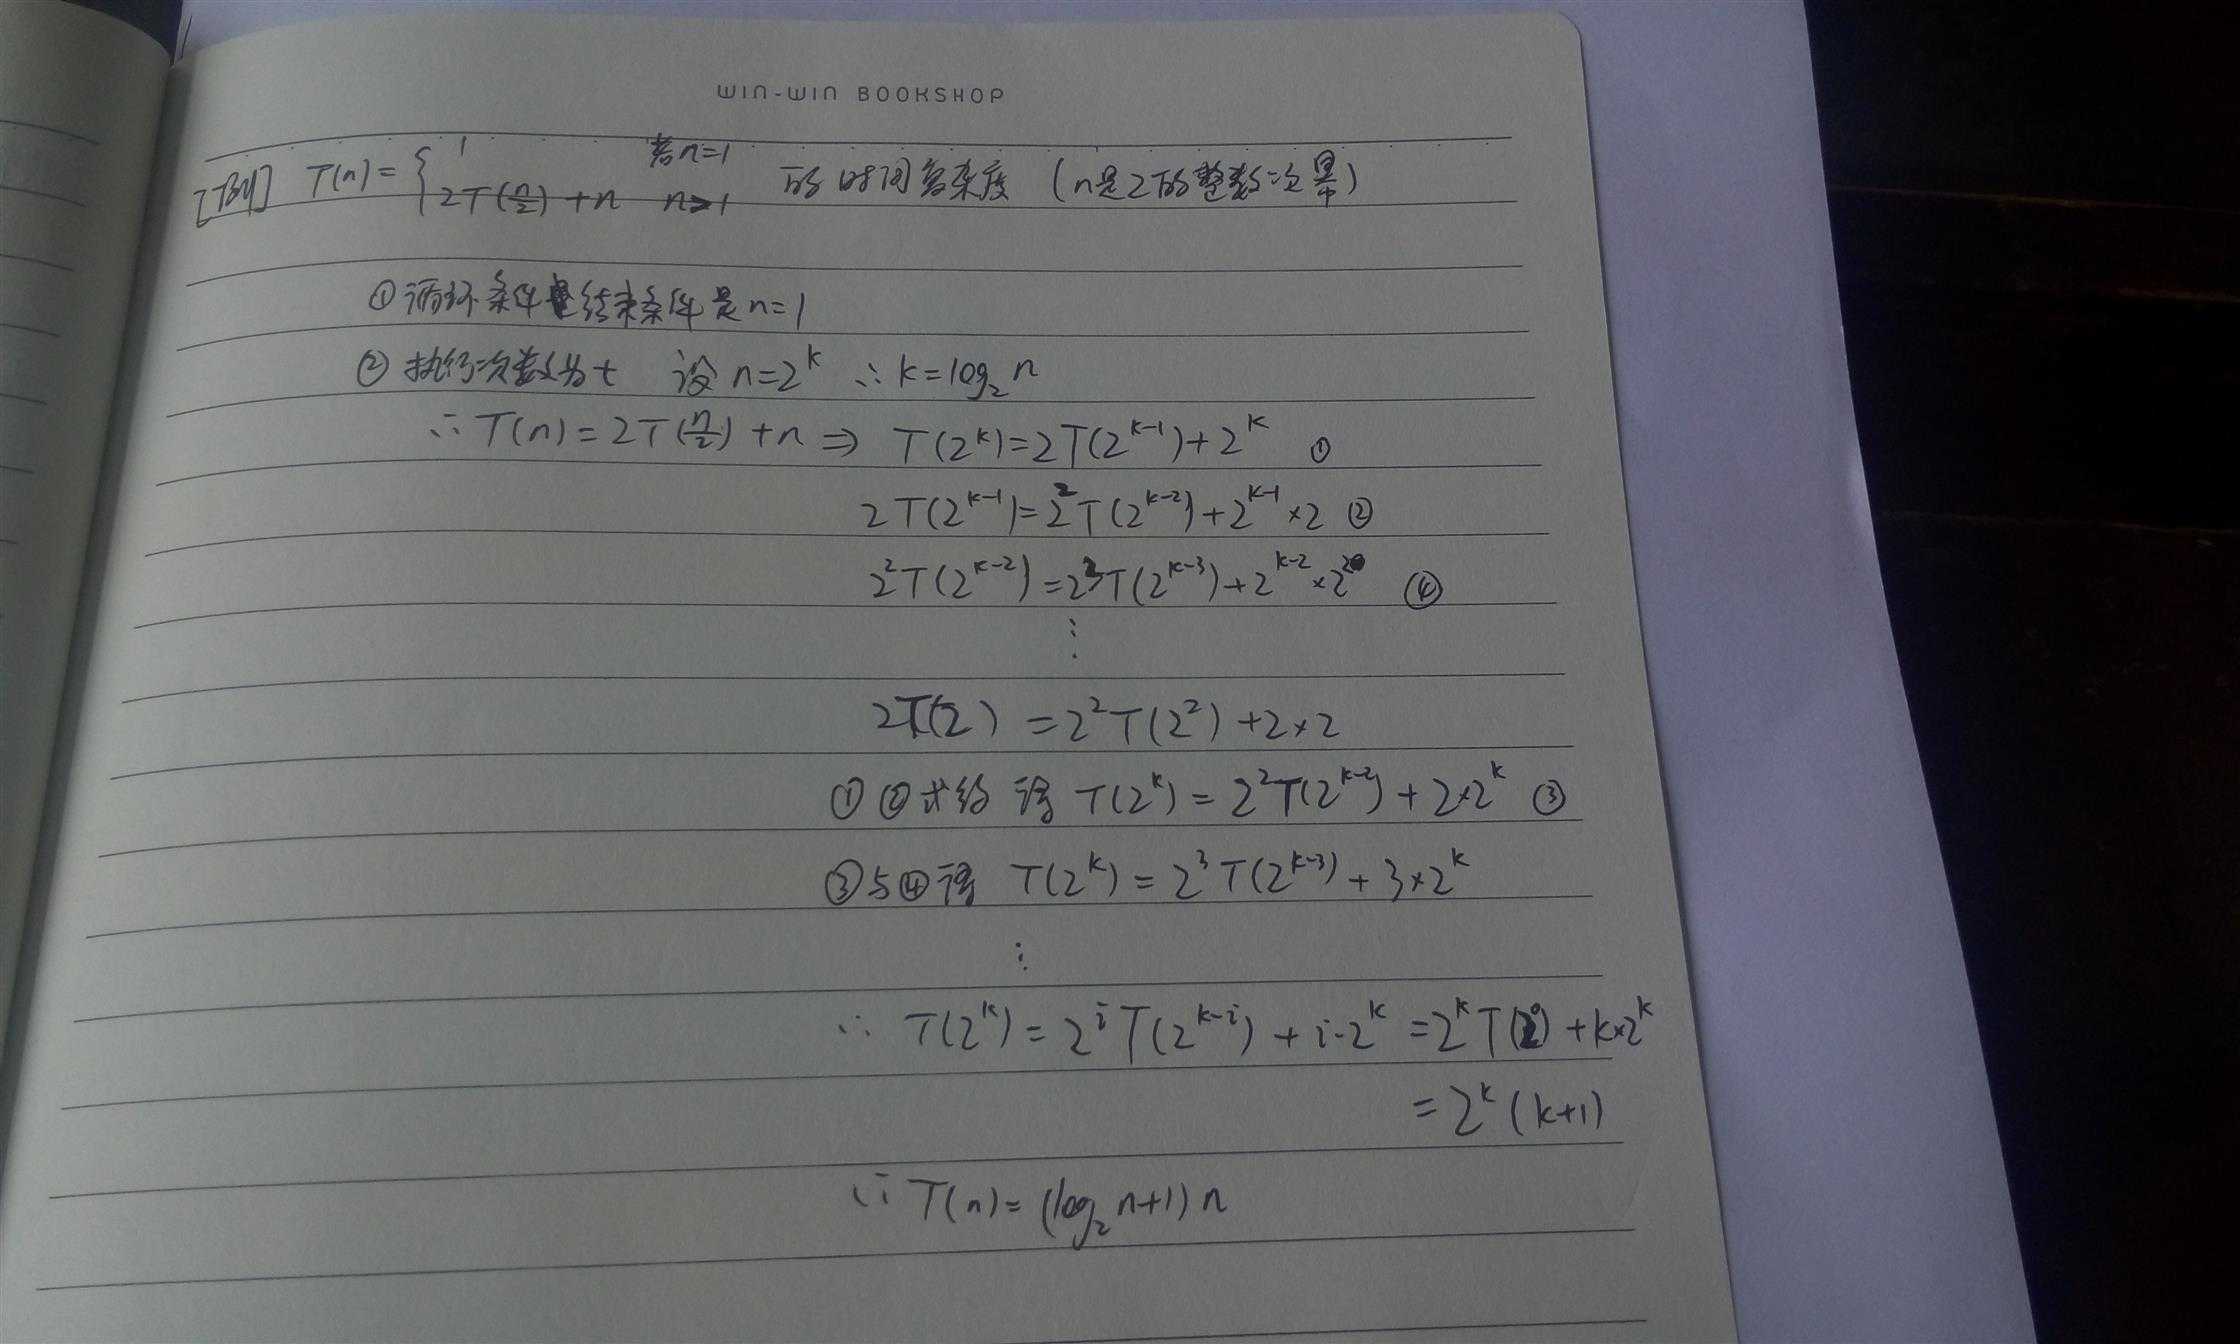 WIN-WIN BOOKSHOP
[例] T(n)={1 若n=1
2T(n/2)+n n>1 的时间复杂度 (n是2的整数次幂)
①循环条件结束条件是n=1
②执行次数为t 设n=2^k ∴k=log₂n
∴T(n)=2T(n/2)+n⇒ T(2^k)=2T(2^(k-1))+2^k ①
2T(2^(k-1))=2²T(2^(k-2))+2^(k-1)×2 ②
2²T(2^(k-2))=2³T(2^(k-3))+2^(k-2)×2² ④
⋮
2T(2)=2²T(2²)+2×2
①②求 得 T(2^k)=2²T(2^(k-2))+2×2^k ③
③与④得 T(2^k)=2³T(2^(k-3))+3×2^k
⋮
∴ T(2^k)=2^i T(2^(k-i))+i·2^k=2^k T(2⁰)+k×2^k
=2^k(k+1)
∴ T(n)=(log₂n+1)n